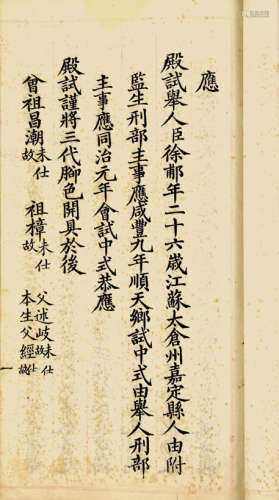 應
殿試舉人臣徐郙年二十六歲江蘇太倉州嘉定縣人由附
監生刑部主事應咸豐九年順天鄉試中式由舉人刑部
主事應同治元年會試中式恭應
殿試謹將三代腳色開具於後
曾祖昌潮未仕故 祖樟未仕故 父述岐未仕故 本生父經未仕故